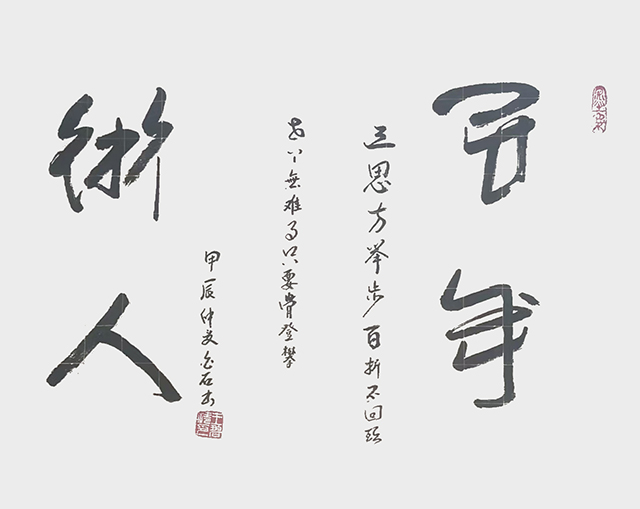 百年
三思方举步百折不回头
世上無难事只要肯登攀
人
甲辰仲夏